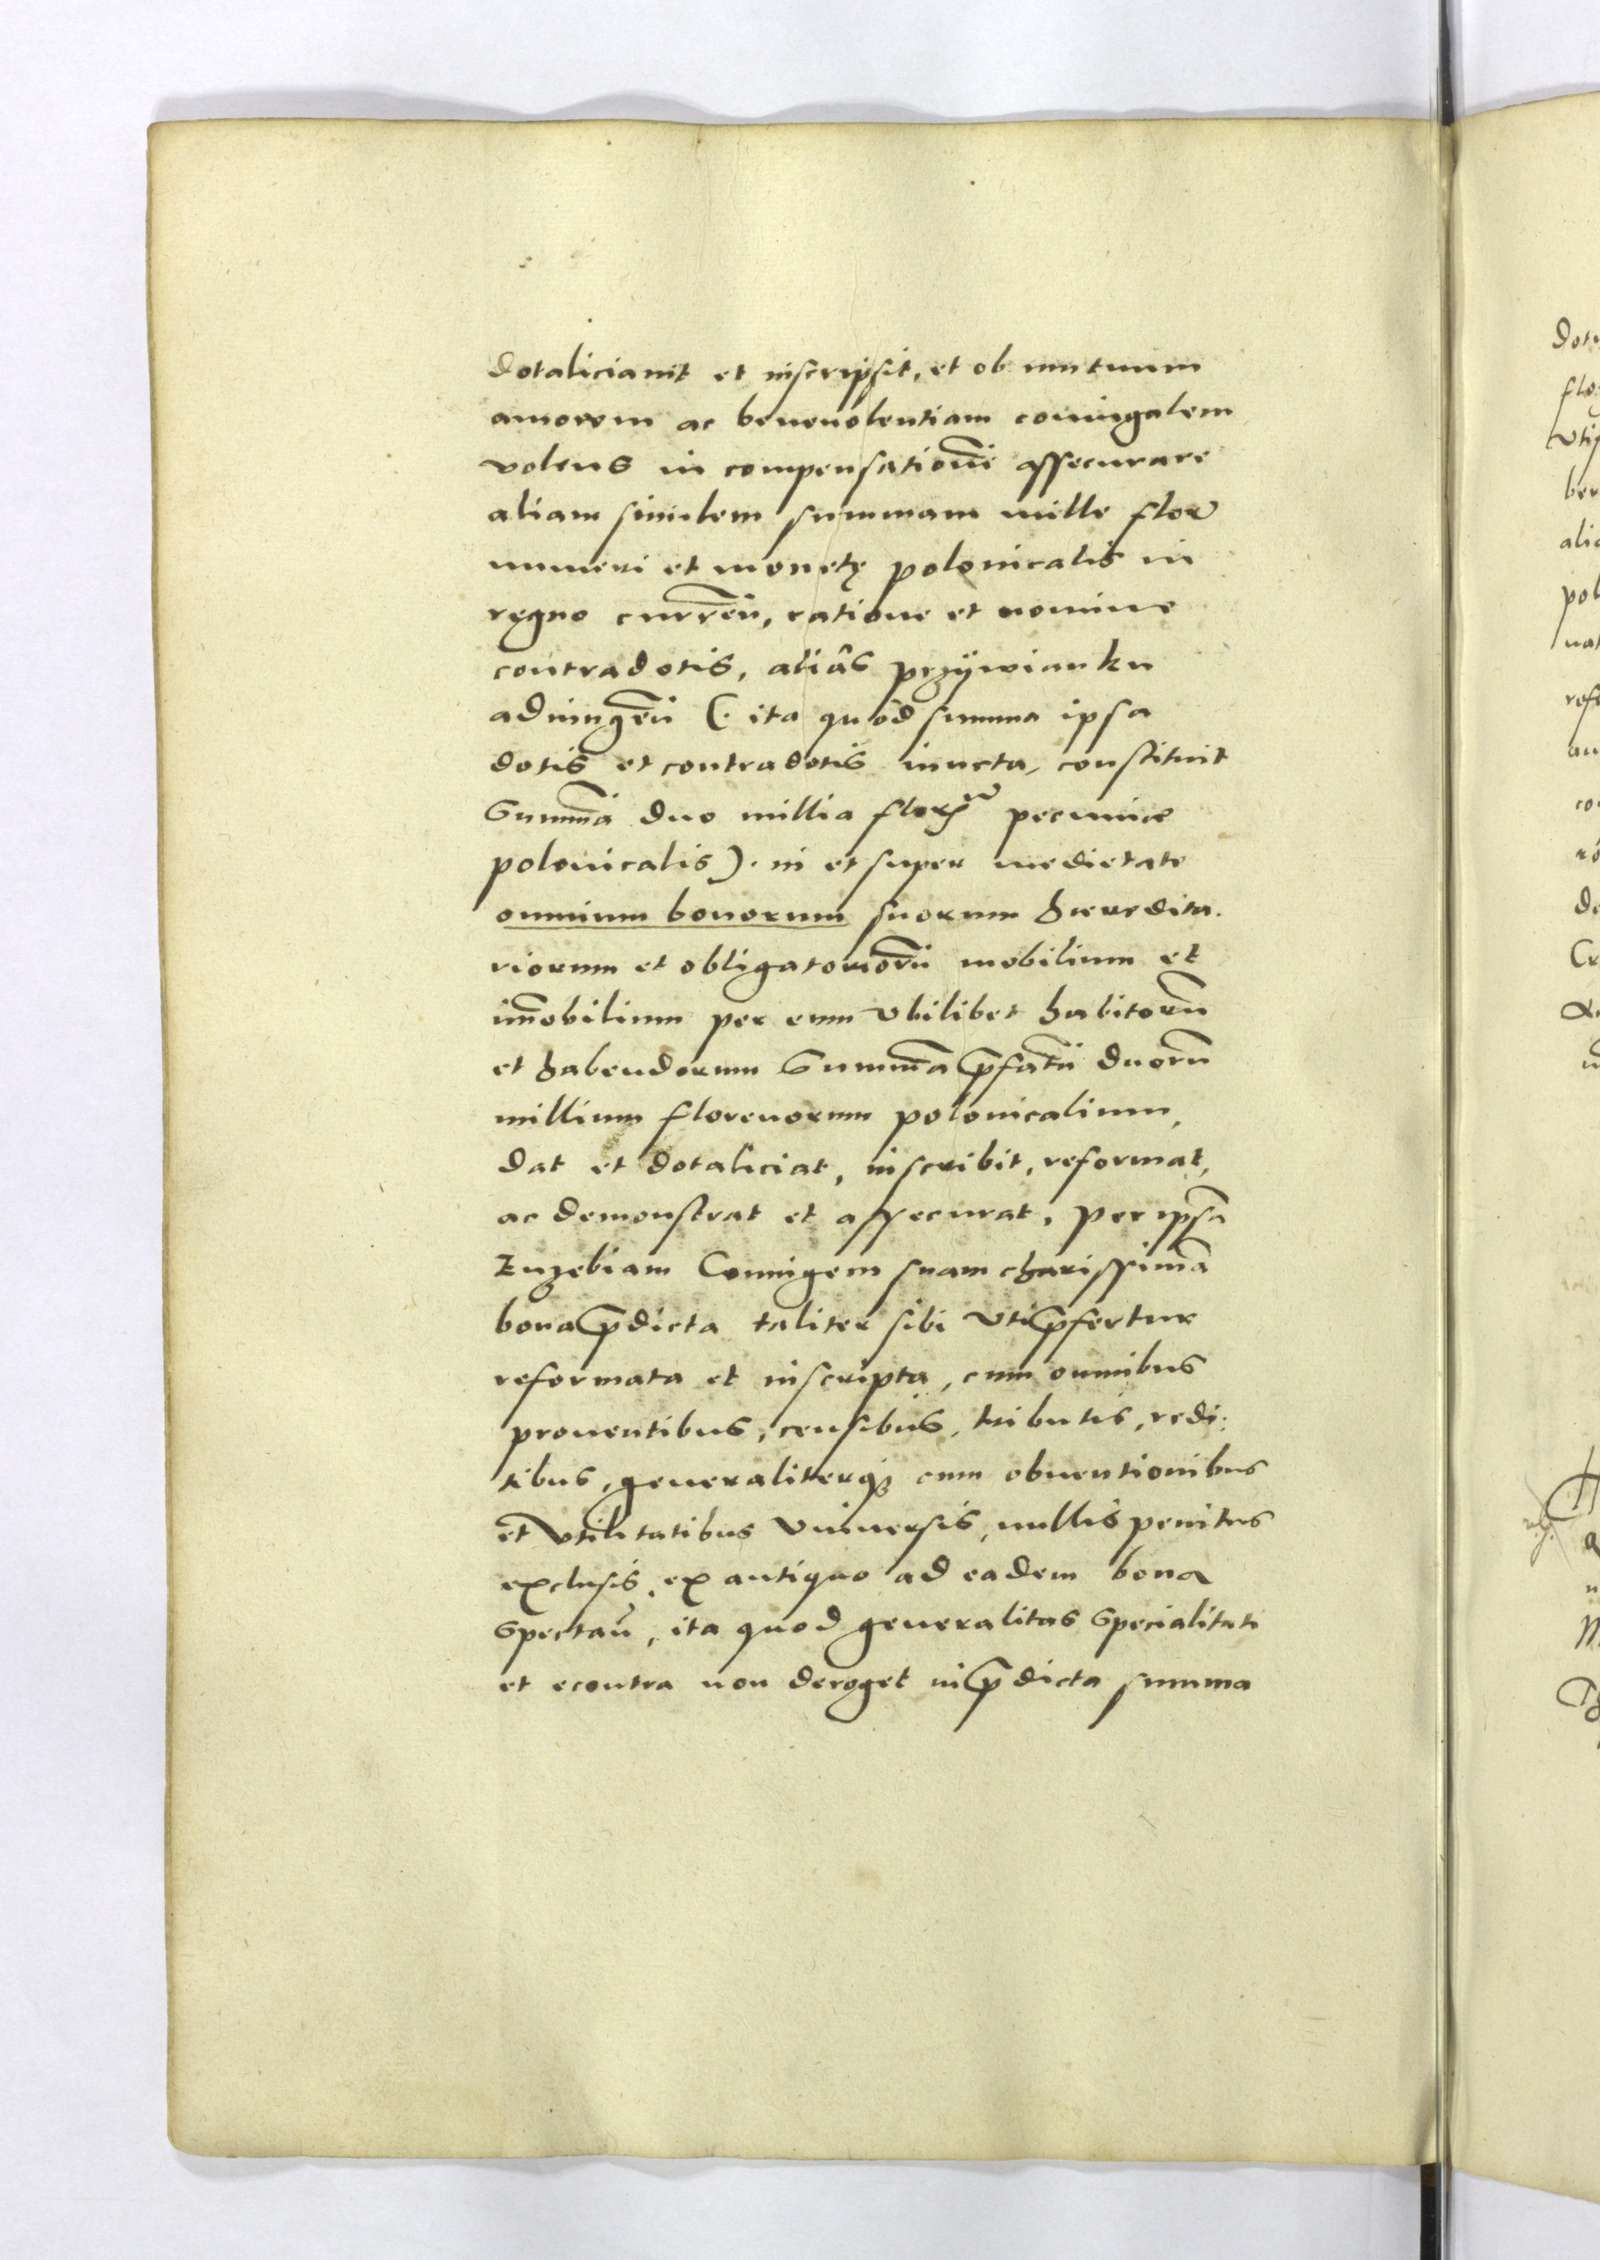 dotaliciauit et inscripsit, et ob mutuum
amorem ac beneuolentiam coniugalem
volens in compensationē assecurare
aliam similem summam mille flor
numeri et monetę polonicalis in
regno currēn, ratione et nomine
contradotis, aliâs przÿwianku
adiungēn (. ita quôd summa ipsa
dotis et contradotis iuncta, constituit
Summā duo millia florę pecuniæ
polonicalis ). in et super medietate
omnium bonorum suorum hæredita.
riorum et obligatoriorū mobilium et
im̄obilium per eum vbilibet habitorū
et habendorum Summā p̄fatā duorū
millium florenorum polonicalium,
dat et dotaliciat, inscribit, reformat,
ac demonstrat et assecurat, per ipsā
Euzebiam Coniugem suam charissimā
bona p̄dicta taliter sibi vti p̄fertur
reformata et inscripta, cum omnibus
prouentibus, censibus, tributis, redi:
tibus, generaliterqꝫ cum obuentionibus
et vtilitatibus vniuersis, nullis penitus
exclusis, ex antiquo ad eadem bona
spectan̄, ita quod generalitas specialitati
et econtra non deroget in p̄dicta summa